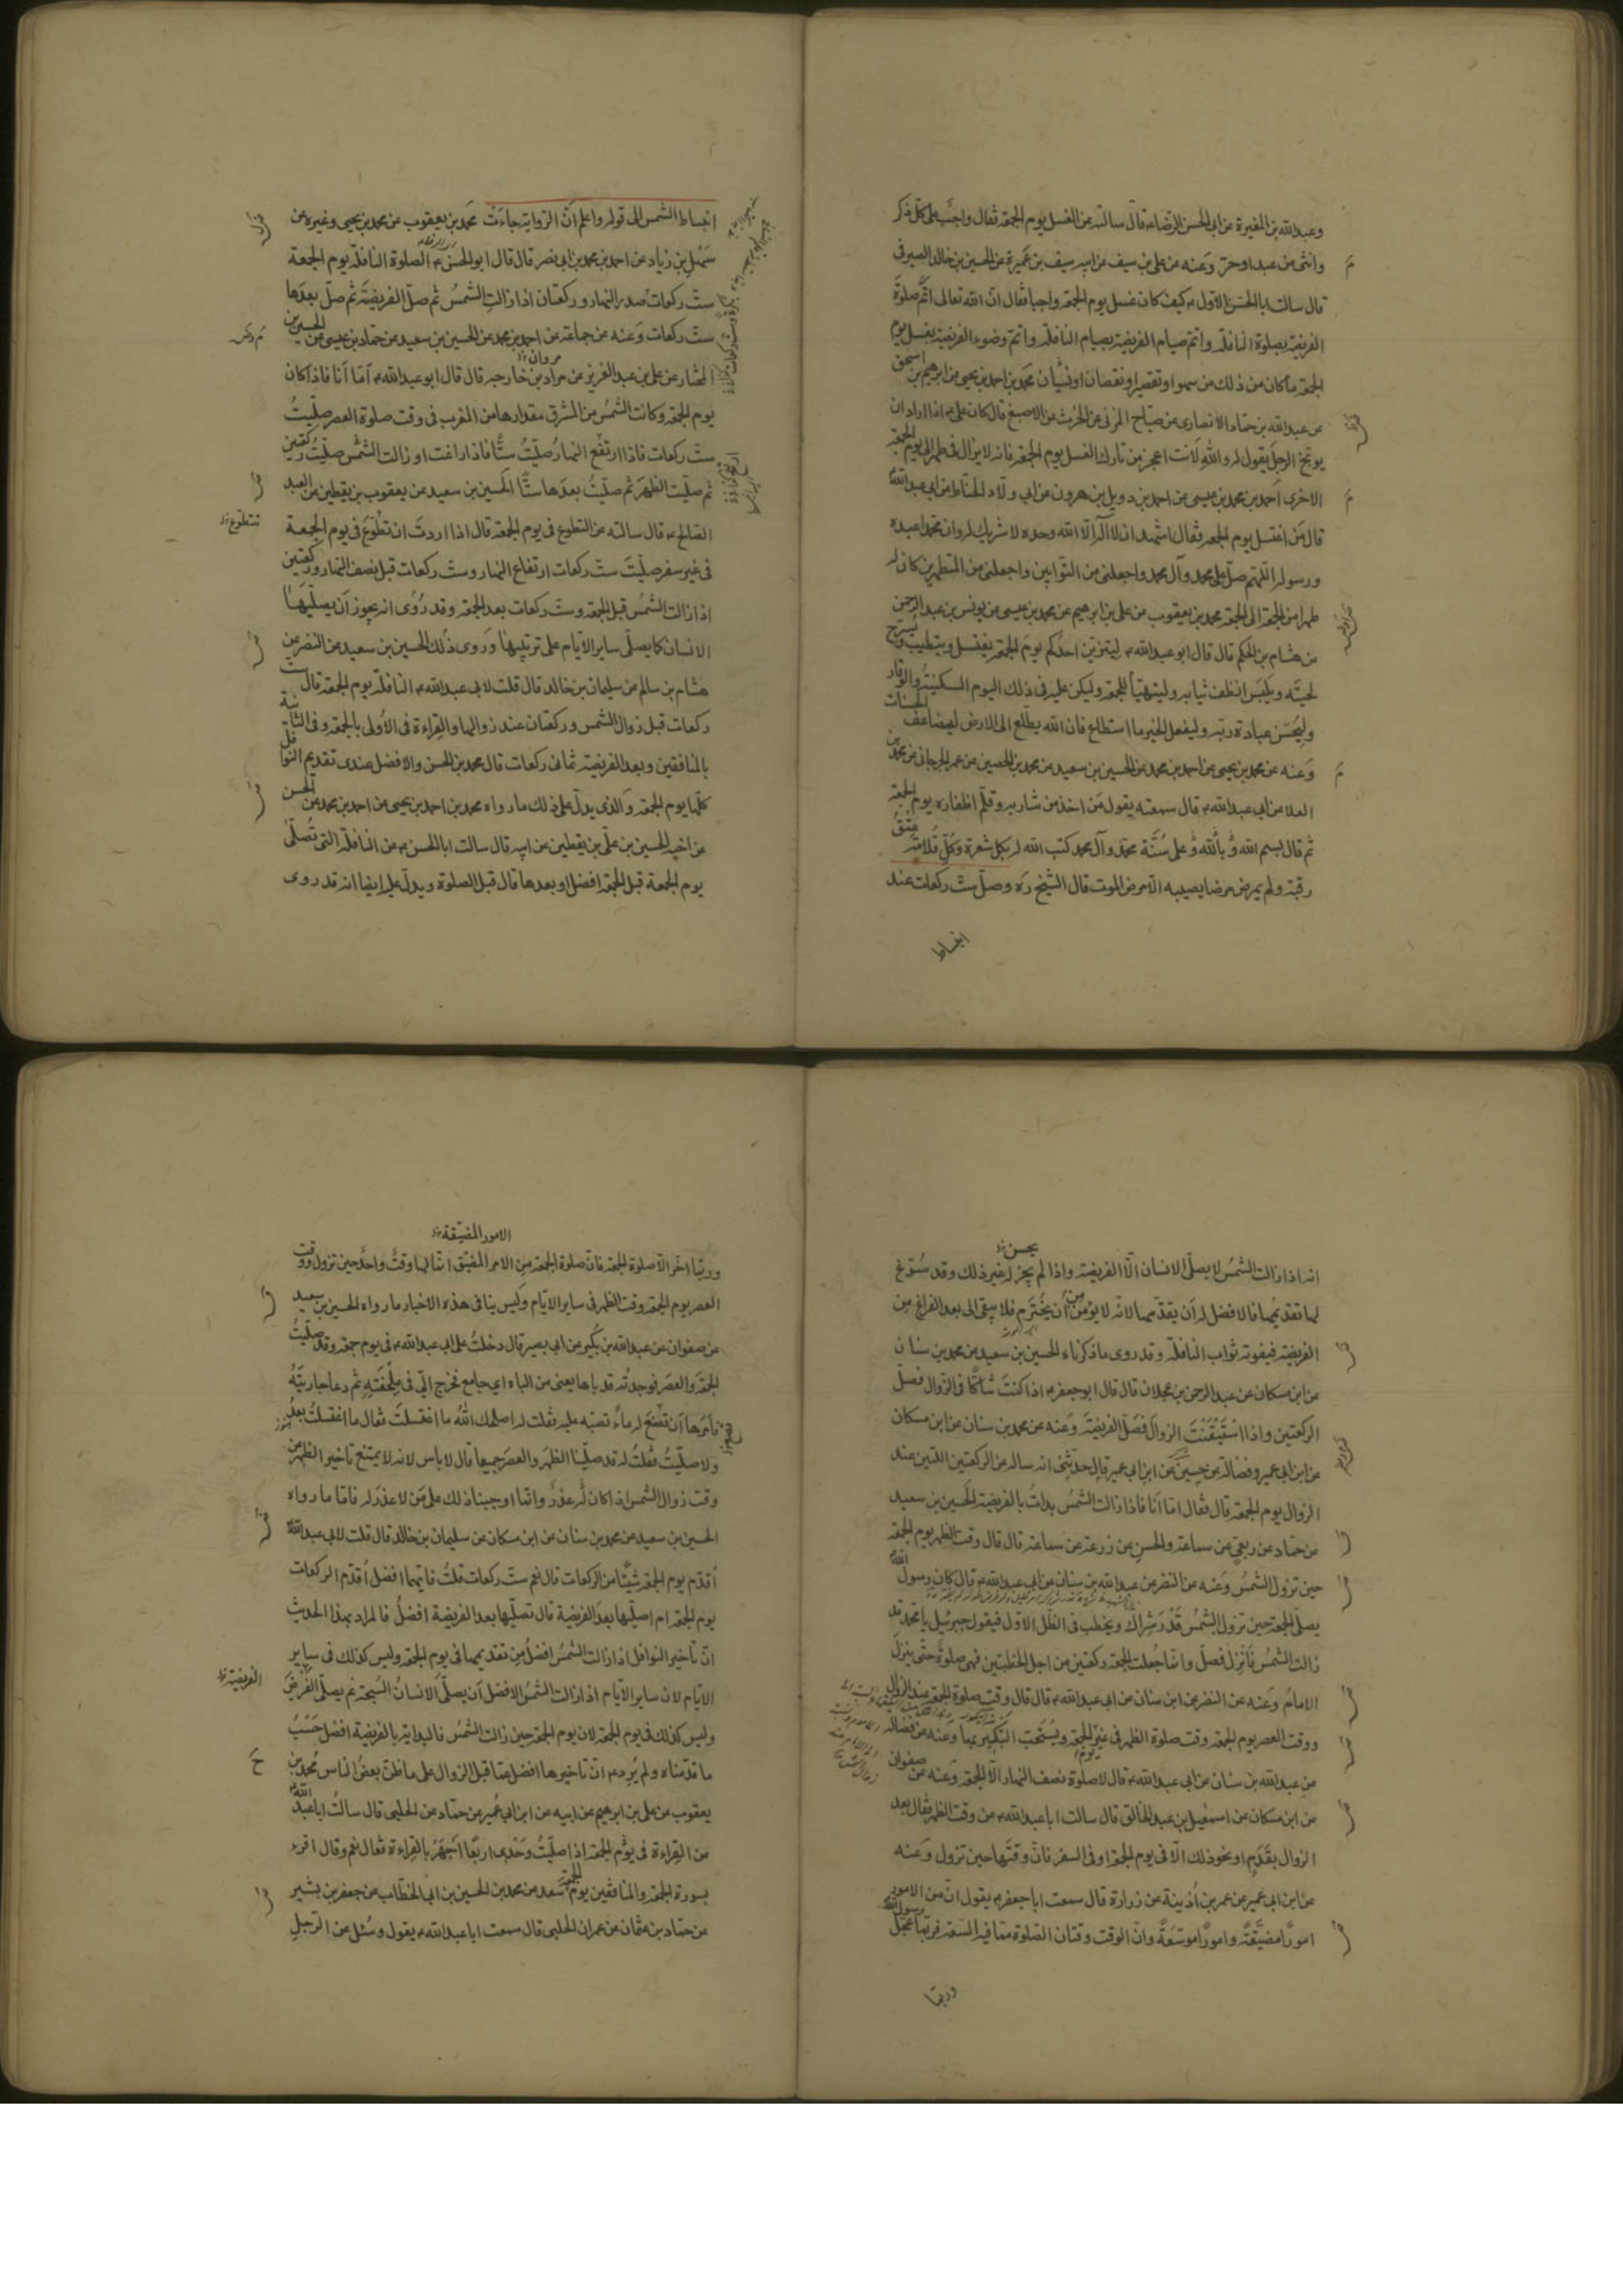 وعبد الله بن المغيرة عن ابى الحسن الرضاء قال سالته عن الغسل يوم الجمعة فقال واجب على كل ذكر
وانثى من عبد او حر وعنه عن على بن سيف عن ابيه سيف بن عميرة عن الحسين بن خالد الصيرفى
قال سالت ابا الحسن الاول ع كيف كان غسل يوم الجمعة واجبا فقال ان الله تعالى اتم صلوة
الفريضة بصلوة النافلة واتم صيام الفريضة بصيام النافلة واتم وضوء الفريضة بغسل يوم
الجمعة ما كان من ذلك من سهو او تقصير او نقصان او نسيان محمد بن احمد بن يحيى عن ابرهيم بن اسحق
عن عبد الله بن حماد الانصارى عن صباح المزنى عن الحرث عن الاصبغ قال كان على ع اذا اراد ان
يوبخ الرجل يقول له والله لانت اعجز من تارك الغسل يوم الجمعة فانه لا يزال فى طهر الى يوم الجمعة
الاخرى احمد بن محمد بن عيسى عن احمد بن دويل بن هرون عن ابى ولاد الحناط عن ابى عبد الله ع
قال من اغتسل يوم الجمعة فقال اشهد ان لا اله الا الله وحده لا شريك له وان محمدا عبده
ورسوله اللهم صل على محمد وآل محمد واجعلنى من التوابين واجعلنى من المتطهرين كان له
طهرا من الجمعة الى الجمعة محمد بن يعقوب عن على بن ابرهيم عن محمد بن عيسى عن يونس بن عبد الرحمن
عن هشام بن الحكم قال قال ابو عبد الله ع ليتزين احدكم يوم الجمعة يغتسل ويتطيب ويسرح
لحيته ويلبس انظف ثيابه وليتهيأ للجمعة وليكن عليه فى ذلك اليوم السكينة والوقار
وليحسن عبادة ربه وليفعل الخير ما استطاع فان الله يطلع الى الارض ليضاعف الحسنات
وعنه عن محمد بن يحيى عن احمد بن محمد عن الحسين بن سعيد عن محمد بن الحصين عن عمر الجرجانى عن محمد بن
العلا عن ابى عبد الله ع قال سمعته يقول من اخذ من شاربه وقلم اظفاره يوم الجمعة
ثم قال بسم الله وبالله وعلى سنة محمد وآل محمد كتب الله له بكل شعرة وكل قلامة عتق
رقبة ولم يمرض مرضا يصيبه الا مرض الموت قال الشيخ ره وصل ست ركعات عند
انبساط
انبساط الشمس الى قوله واعلم ان الرواية جاءت محمد بن يعقوب عن محمد بن يحيى وغيره عن
سهل بن زياد عن احمد بن محمد بن ابى نصر قال قال ابو الحسن ع الصلوة النافلة يوم الجمعة
ست ركعات صدر النهار وركعتان اذا زالت الشمس ثم صل الفريضة ثم صل بعدها
ست ركعات وعنه عن جماعة عن احمد بن محمد عن الحسين بن سعيد عن حماد بن عيسى عن الحسين بن
المختار عن على بن عبد العزيز عن مراد بن خارجة قال قال ابو عبد الله ع اما انا فاذا كان
مروان
يوم الجمعة وكانت الشمس من المشرق مقدارها من المغرب فى وقت صلوة العصر صليت
ست ركعات فاذا ارتفع النهار صليت ستا فاذا زاغت او زالت الشمس صليت ركعتين
ثم صليت الظهر ثم صليت بعدها ستا الحسين بن سعيد عن يعقوب بن يقطين عن العبد
الصالح ع قال سالته عن التطوع فى يوم الجمعة قال اذا اردت ان تطوع فى يوم الجمعة
تتطوع
فى غير سفر صليت ست ركعات ارتفاع النهار وست ركعات قبل نصف النهار وركعتين
اذا زالت الشمس قبل الجمعة وست ركعات بعد الجمعة وقد روى انه يجوز ان يصليها
الانسان كما يصلى ساير الايام على ترتيبها وروى ذلك الحسين بن سعيد عن النضر عن
هشام بن سالم عن سليمان بن خالد قال قلت لابى عبد الله ع النافلة يوم الجمعة قال ست
ركعات قبل زوال الشمس وركعتان عند زوالها والقراءة فى الاولى بالجمعة وفى الثانية
بالمنافقين وبعد الفريضة ثمانى ركعات قال محمد بن الحسن والافضل عندى تقديم النوافل
كلها يوم الجمعة والذى يدل على ذلك ما رواه محمد بن احمد بن يحيى عن احمد بن محمد عن الحسن
عن اخيه الحسين بن على بن يقطين عن ابيه قال سالت ابا الحسن ع عن النافلة التى تصلى
يوم الجمعة قبل الجمعة افضل او بعدها قال قبل الصلوة ويدل عليه ايضا انه قد روى
يحسن
انه اذا زالت الشمس لا يصلى الانسان الا الفريضة واذا لم يجز له غير ذلك وقد سوغ
لها تقديمها فالافضل له ان يقدمها لانه لا يؤمن من ان يخترم فلا يبقى الى بعد الفراغ من
الفريضة فيفوته ثواب النافلة وقد روى ما ذكرناه الحسين بن سعيد عن محمد بن سنان
عن ابن مسكان عن عبد الرحمن بن عجلان قال قال ابو جعفر ع اذا كنت شاكا فى الزوال فصل
الركعتين واذا استيقنت الزوال فصل الفريضة وعنه عن محمد بن سنان عن ابن مسكان
عن ابن ابى عمير وفضالة عن حسين عن ابن ابى عمير قال حدثنى انه ساله عن الركعتين اللتين عند
الزوال يوم الجمعة قال فقال اما انا فاذا زالت الشمس بدات بالفريضة الحسين بن سعيد
عن حماد عن ربعى عن سماعة والحسن عن زرعة عن سماعة قال قال وقت الظهر يوم الجمعة
حين تزول الشمس وعنه عن النضر عن عبد الله بن سنان عن ابى عبد الله ع قال كان رسول الله
يصلى الجمعة حين تزول الشمس قدر شراك ويخطب فى الظل الاول فيقول جبرئيل يا محمد قد
زالت الشمس فانزل فصل وانما جعلت الجمعة ركعتين من اجل الخطبتين فهى صلوة حتى ينزل
الامام وعنه عن النضر عن ابن سنان عن ابى عبد الله ع قال قال وقت صلوة الجمعة عند الزوال
ووقت العصر يوم الجمعة وقت صلوة الظهر فى غير يوم الجمعة ويستحب التكبير بها وعنه عن فضالة
عن عبد الله بن سنان عن ابى عبد الله ع قال لا صلوة نصف النهار الا الجمعة وعنه عن صفوان
عن ابن مسكان عن اسمعيل بن عبد الخالق قال سالت ابا عبد الله ع عن وقت الظهر فقال بعد
الزوال بقدم او نحو ذلك الا فى يوم الجمعة او فى السفر فان وقتها حين تزول وعنه
عن ابن ابى عمير عن عمر بن اذينة عن زرارة قال سمعت ابا جعفر ع يقول ان من الامور
امورا مضيقة وامورا موسعة وان الوقت وقتان الصلوة مما فيه السعة فربما عجل رسول الله
وربما
الامور المضيقة
وربما اخر الا صلوة الجمعة فان صلوة الجمعة من الامر المضيق انما لها وقت واحد حين تزول ووقت
العصر يوم الجمعة وقت الظهر فى ساير الايام وليس ينافى هذه الاخبار ما رواه الحسين بن سعيد
عن صفوان عن عبد الله بن بكير عن ابى بصير قال دخلت على ابى عبد الله ع فى يوم جمعة وقد صليت
الجمعة والعصر فوجدته قد باها يعنى من الباه اى جامع فخرج الى فى ملحفته ثم دعا جاريته
فامرها ان تضع له ماء تصبه عليه فقلت له اصلحك الله ما اغتسلت فقال ما اغتسلت بعد
ولا صليت فقلت له قد صلينا الظهر والعصر جميعا قال لا باس لانه لا يمتنع تاخير الظهر عن
وقت زوال الشمس اذا كان له عذر وانما اوجبنا ذلك على من لا عذر له فاما ما رواه
الحسين بن سعيد عن محمد بن سنان عن ابن مسكان عن سليمان بن خالد قال قلت لابى عبد الله ع
اقدم يوم الجمعة شيئا من الركعات قال نعم ست ركعات قلت فايهما افضل اقدم الركعات
يوم الجمعة ام اصليها بعد الفريضة قال تصليها بعد الفريضة افضل فالمراد بهذا الحديث
ان تاخير النوافل اذا زالت الشمس افضل من تقديمها فى يوم الجمعة وليس كذلك فى ساير
الايام لان ساير الايام اذا زالت الشمس الافضل ان يصلى الانسان السبحة ثم يصلى الفرض
الفريضة
وليس كذلك فى يوم الجمعة لان يوم الجمعة حين زالت الشمس فالبداية بالفريضة افضل حسب
ما قدمناه ولم يرد ع ان تاخيرها افضل عما قبل الزوال على ما ظن بعض الناس محمد بن
يعقوب عن على بن ابرهيم عن ابيه عن ابن ابى عمير عن حماد عن الحلبى قال سالت ابا عبد الله
عن القراءة فى يوم الجمعة اذا صليت وحدى اربعا اجهر بالقراءة فقال نعم وقال اقرء
بسورة الجمعة والمنافقين يوم الجمعة سعد عن محمد بن الحسين بن ابى الخطاب عن جعفر بن بشير
عن حماد بن عثمان عن عمران الحلبى قال سمعت ابا عبد الله ع يقول وسئل عن الرجل